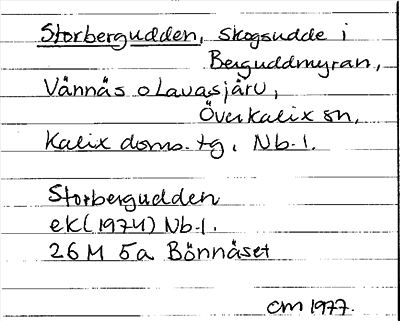 Storbergudden, skogsudde i
Berguddmyran,
Vännäs o Lavasjärv,
Överkalix sn,
Kalix doms. tg, Nb. l.
Storbergudden
ek (1974) Nb. l.
26 M 5a Bönnäset
CM 1977.